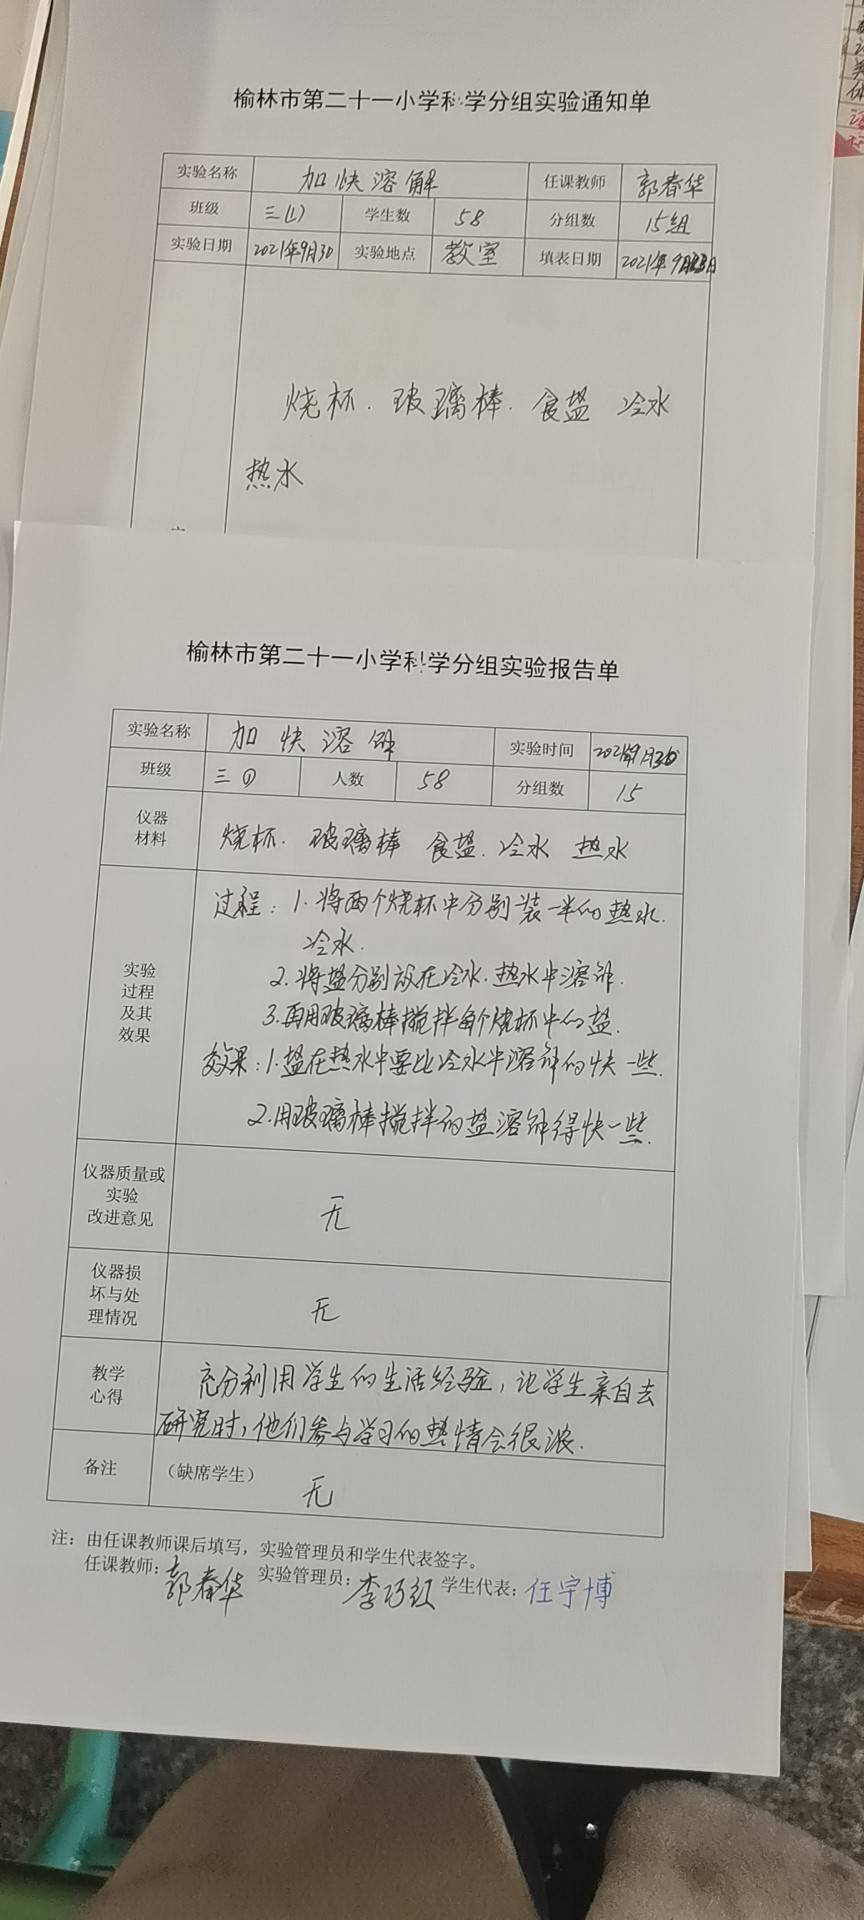 榆林市第二十一小学科学分组实验通知单
实验名称 加快溶解 任课教师 郭春华
班级 三(1) 学生数 58 分组数 15组
实验日期 2021年9月30 实验地点 教室 填表日期 2021年9月
烧杯. 玻璃棒. 食盐 冷水
热水
榆林市第二十一小学科学分组实验报告单
实验名称 加快溶解 实验时间 2021年9月30
班级 三① 人数 58 分组数 15
仪器
材料
烧杯. 玻璃棒 食盐. 冷水 热水
实验
过程
及其
效果
过程: 1. 将两个烧杯中分别装一半的热水.
冷水.
2. 将盐分别放在冷水.热水中溶解.
3. 再用玻璃棒搅拌每个烧杯中的盐.
效果: 1. 盐在热水中要比冷水中溶解的快一些.
2. 用玻璃棒搅拌的盐溶解得快一些.
仪器质量或
实验
改进意见
无
仪器损
坏与处
理情况
无
教学
心得
充分利用学生的生活经验, 让学生亲自去
研究时, 他们参与学习的热情会很浓.
备注 (缺席学生)
无
注: 由任课教师课后填写, 实验管理员和学生代表签字。
任课教师: 郭春华 实验管理员: 李巧红 学生代表: 任宇博